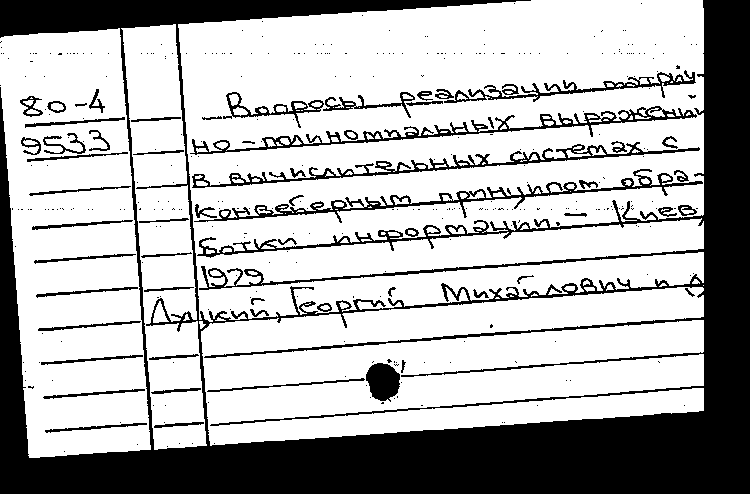 80-4
9533
Вопросы реализации матрич-
но-полиномиальных выражений
в вычислительных системах с
конвейерным принципом обра-
ботки информации.- Киев,
1979.
Луцкий, Георгий Михайлович и д